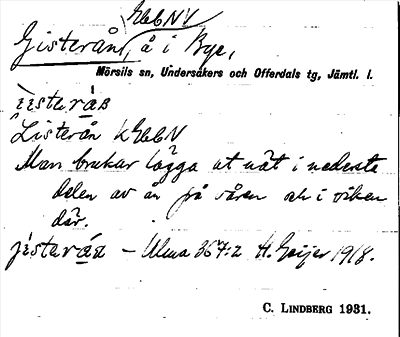 EkbNV
Gisterån, å i Bye,
Mörsils sn, Undersåkers och Offerdals tg, Jämtl. l.
Listerån EkbN
Man brukar lägga ut nät i nedersta
delen av ån på våren och i viken
där.
Ulma 367:2 H. Geijer 1918.
C. LINDBERG 1931.